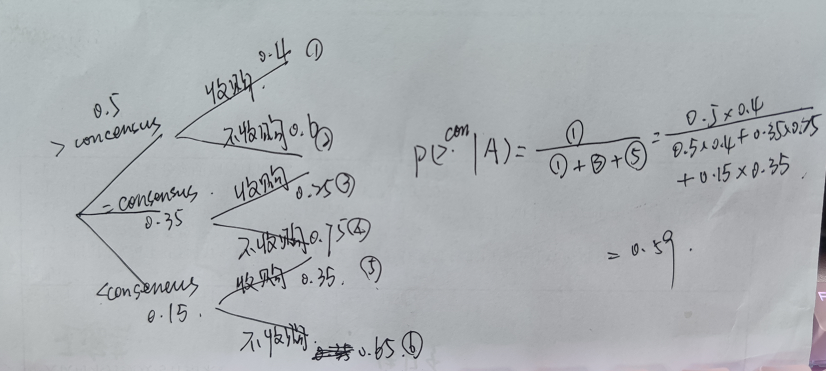 0.5
> concensus
收购 0.4 ①
不收购 0.6 ②
= consensus.
0.35
收购 0.25 ③
不收购 0.75 ④
<consensus
0.15.
收购 0.35. ⑤
不收购. 0.65. ⑥
P(>con|A) = ① / (① + ③ + ⑤) = 0.5×0.4 / (0.5×0.4 + 0.35×0.25 + 0.15×0.35.)
= 0.59.